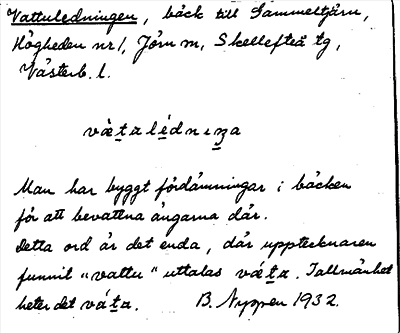 Vattuledningen, bäck till Sammeltjärn,
Högheden nr 1, Jörn m, Skellefteå tg,
Västerb. l.
væ̀t̲a lédnıŋa
Man har byggt fördämningar i bäcken
för att bevattna ängarna där.
Detta ord är det enda, där upptecknaren
funnit "vattu" uttalas vǽt̲a. I allmänhet
heter det vát̲a. B. Nyppen 1932.